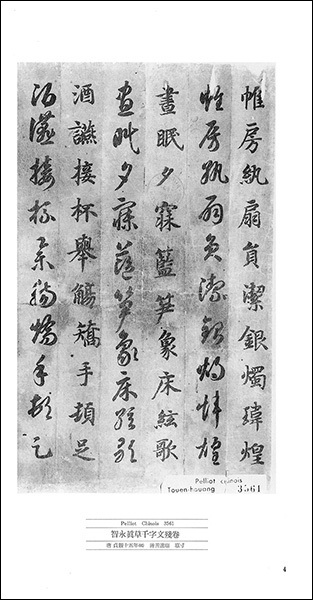 帷房紈扇員潔銀燭瑋煌
帷房紈扇員潔銀燭瑋煌
晝眠夕寐藍笋象床絃歌
晝眠夕寐藍笋象床絃歌
酒讌接杯舉觴矯手頓足
酒讌接杯舉觴矯手頓足
Pelliot chinois
Touen-houang 3561
Pelliot Chinois 3561
智永眞草千字文殘卷
唐 貞觀十五年641 蔣善進臨 原寸
4